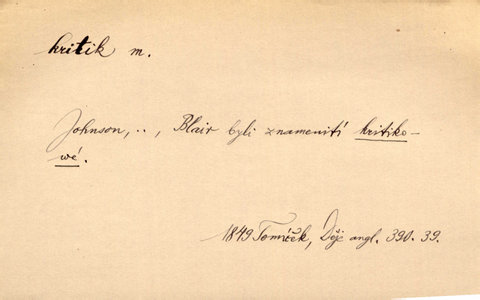 kritik m.
Johnson, .., Blair byli znamenití kritiko-
wé.
1849 Tomíček, Děje angl. 390. 39.